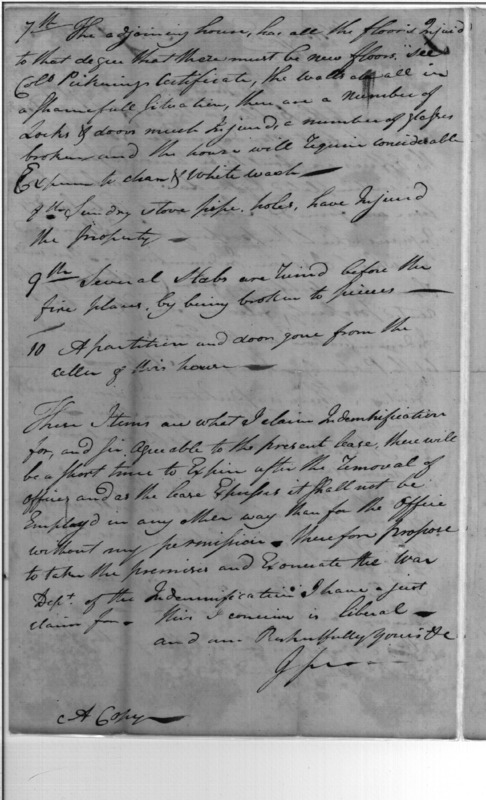 7th The adjoining house, has all the floors Injur'd
to that degree that there must be new floors, "see
Colo Picknings Certificate, the walls are all in
a Shamefull Situation, there are a number of
Locks & doors much Injured, a number of glasses
broken and the house will require considerable
Expence to clean & White wash —
8th Sundry stove pipe holes, have Injured
the Property —
9th Several Slabs are ruin'd before the
fire places, by being broken to pieces —
10 A partition and door gone from the
celler of this house —
These Items are what I claim Indemnification
for, and sir, agreeable to the present lease, there will
be a short time to Expire after the removal of
offices and as the lease Expresses it shall not be
Employ'd in any other way than for the Office
without my permission — therefore Propose
to take the premises and Exonerate the War
Dept. of the Indemnification I have a just
claim for — this I conceive is liberal —
and am Respectfully yours &c
A Copy —